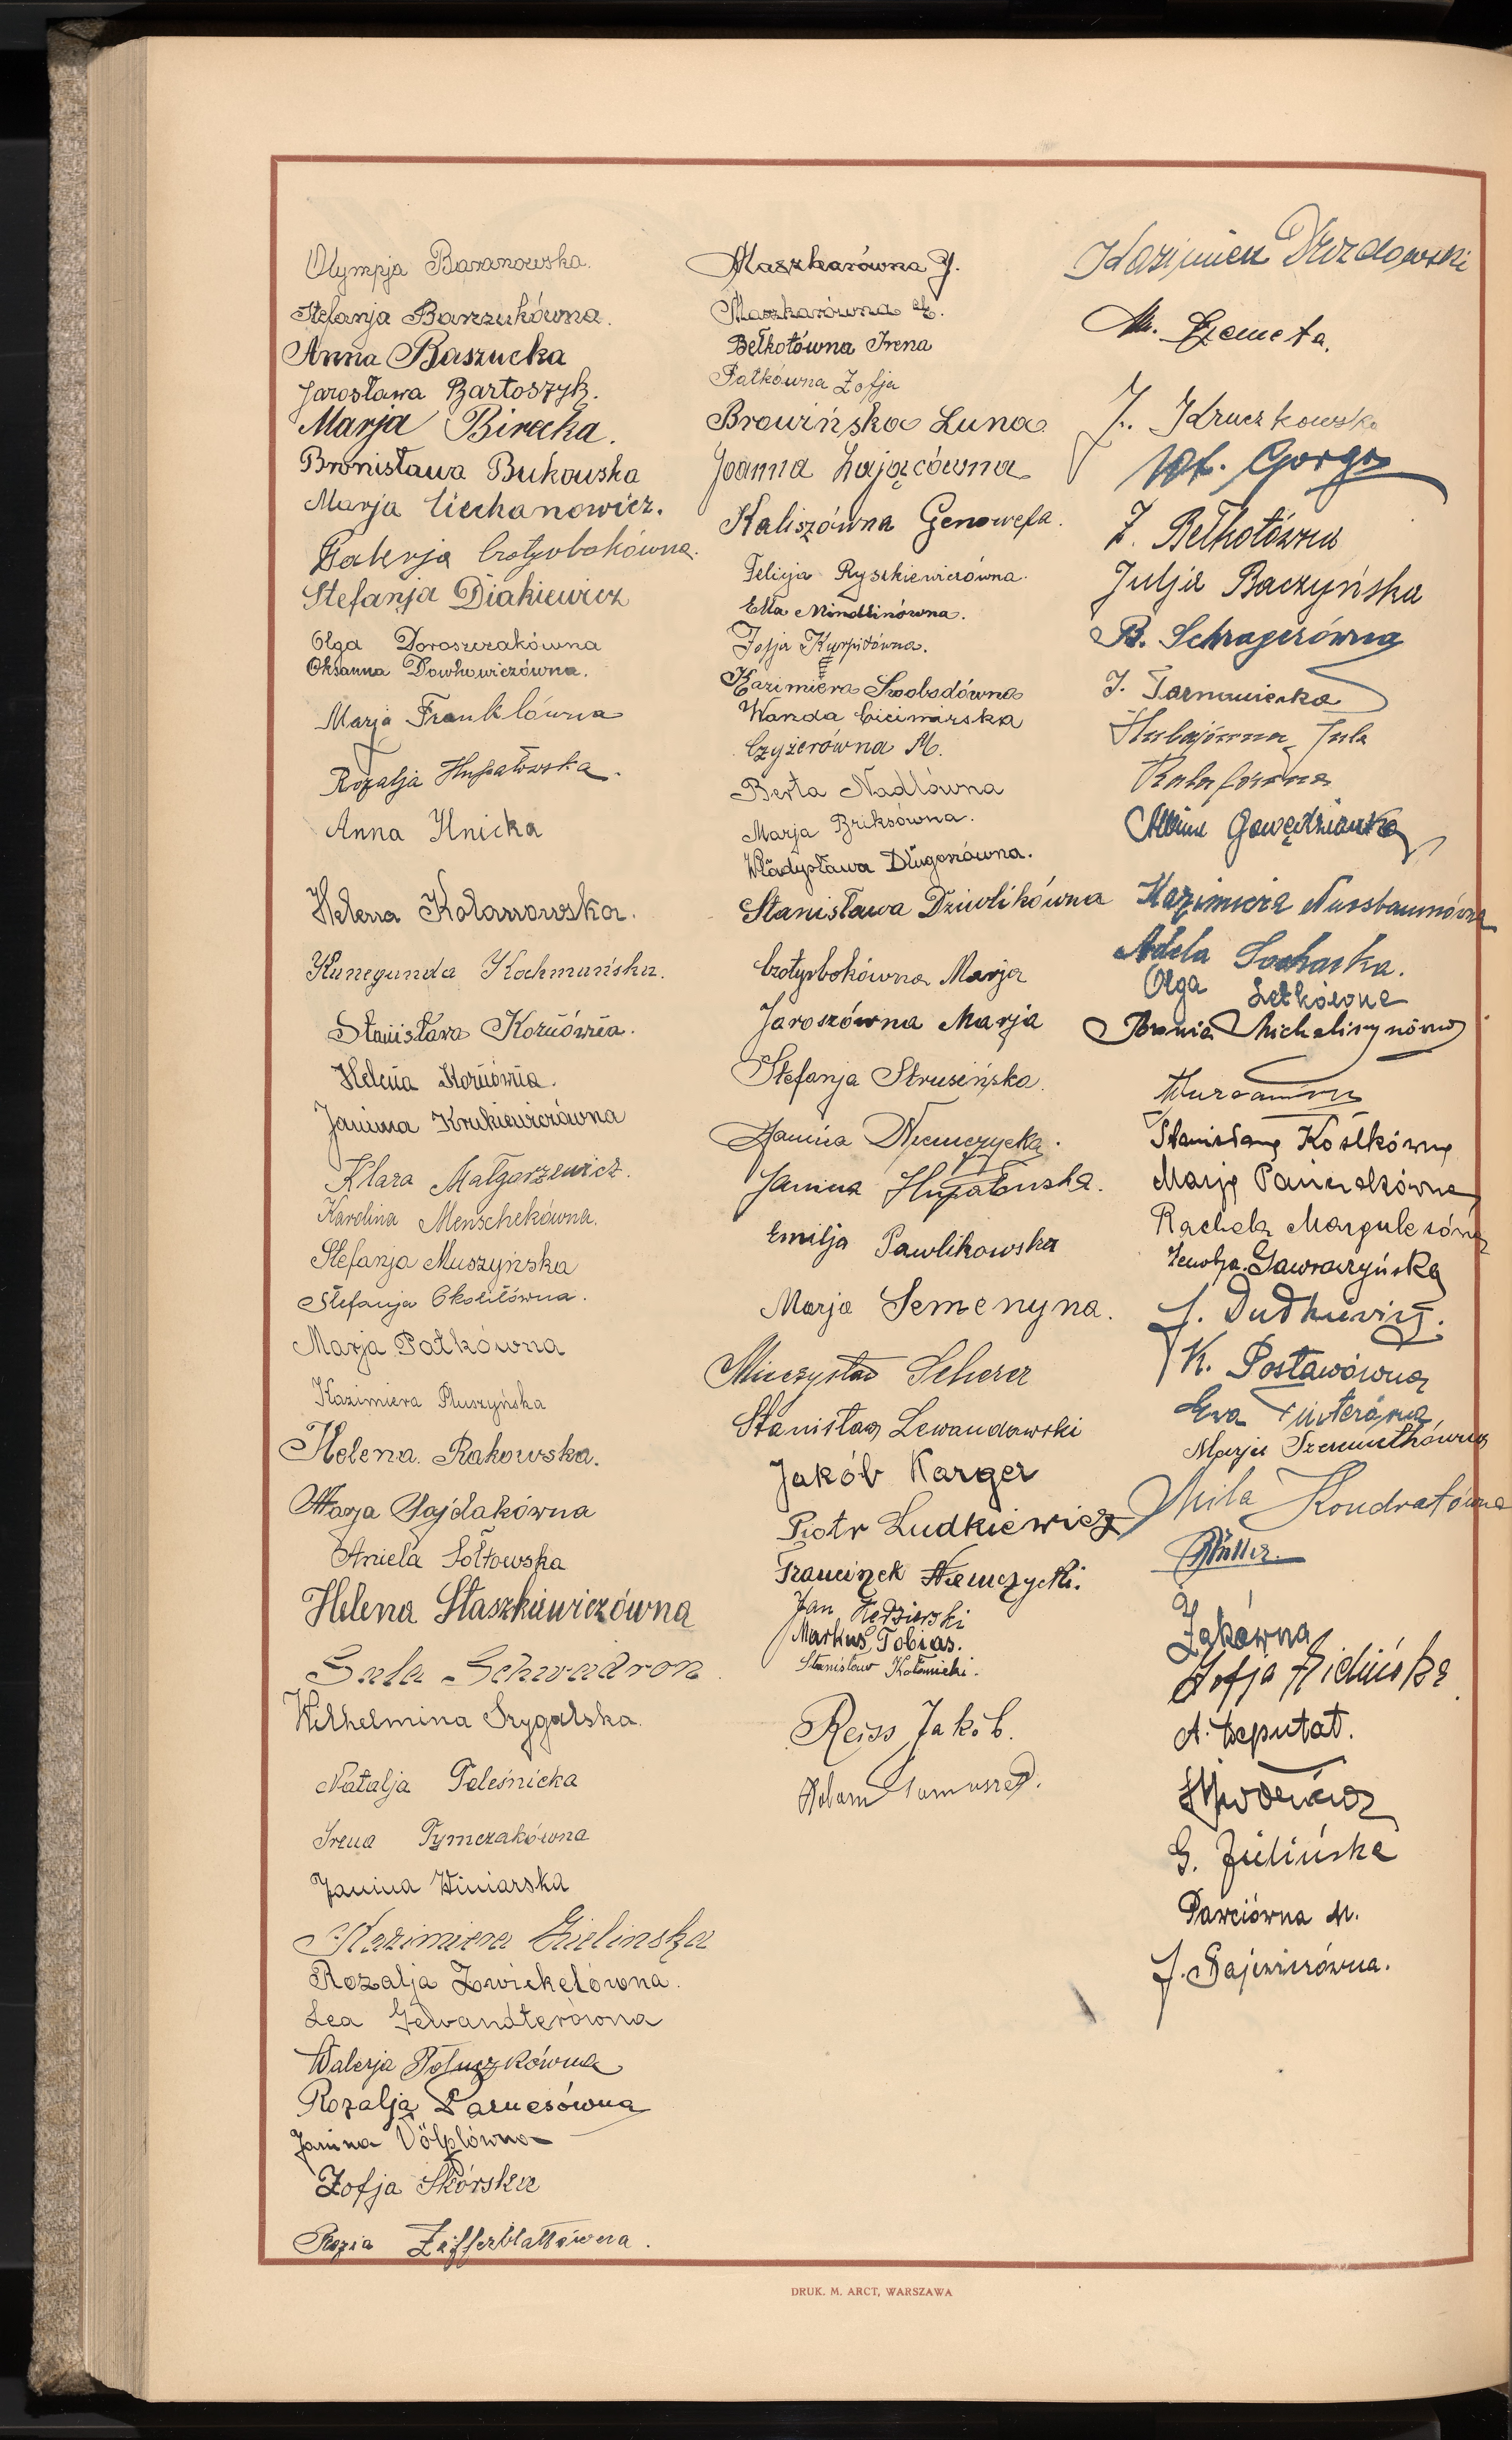 Olympja Baranowska.
Stefanja Barszukówna.
Anna Baszucka
Jarosława Bartoszyk.
Marja Birecka.
Bronisława Bukowska
Marja Ciechanowicz.
Czołysbokówna.
Stefanja Diakiewicz
Olga Doroszczakówna
Oksanna Dowhowiczówna.
Marja Franklówna
Rozalja Hupałowska.
Anna Hnicka
Helena Kolanowska.
Kunegunda Kochmańska.
Stanisława Korniówna.
Helena Korniówna.
Janina Krukiewiczówna
Klara Małgorzewicz.
Karolina Menschekówna.
Stefanja Muszyńska
Stefanja Okolitówna.
Marja Patkówna
Kazimiera Pluszyńska
Helena Rakowska.
Marja Sajdakówna
Aniela Sołtowska
Helena Staszkiewiczówna
Sala Schwadron
Wilhelmina Szygalska.
Natalja Toleśnicka
Irena Tymczakówna
Janina Winiarska
Kazimiera Zielinska
Rozalja Zwickelówna.
Lea Gewandterówna
Walerja Potuczkówna
Rozalja Parnesówna
Janina Völplówna
Zofja Skórska
Rozia Zifferblattówna.
Maszkarówna J.
Maszkarówna E.
Bełkotówna Irena
Patkówna Zofja
Browińska Luna
Joanna Zającówna
Kaliszówna Genowefa.
Felicja Ryszkiewiczówna.
Etta Mindlinówna.
Zofja Kurpitówna.
Kazimiera Swobodówna
Wanda Cicimirska
Czyżerówna M.
Berta Nadlówna
Marja Briksówna.
Władysława Długoszówna.
Stanisława Dziwlikówna
Czołysbokówna Marja
Jaroszówna Marja
Stefanja Strusińska.
Janina Niemczycka.
Janina Hupałowska.
Emilja Pawlikowska
Marja Semenyna.
Mieczysław Scherer
Stanisław Lewandowski
Jakób Karger
Piotr Ludkiewicz
Franciszek Niemczycki.
Jan Kędzierski
Markus Tobias.
Stanisław Kołomicki.
Reiss Jakób.
Kazimierz Drozdowski
M. Szemeta.
J. Kruczkowska
Wł. Gorgo
Z. Bełkotówna
Julja Baczyńska
B. Schragerówna
J. Tarnawiecka
Hulajówna Jula
Gawędzianka
Kazimiera Nussbaumówna
Adela Sochacka.
Olga Letkówna
Bronia Michaliszynówna
Stanisława Kostkówna
Marja Panczakówna
Rachela Margulesówna
Zenobja Gawraczyńska
J. Dudkiewicz.
K. Postawówna
Ewa Finterówna
Marja Szeremethówna
Mila Kondratówna
Müller.
Żakówna
Zofja Zielińska
A. Deputat.
G. Zielińska
Pawciówna M.
J. Gajewiczówna.
DRUK. M. ARCT, WARSZAWA